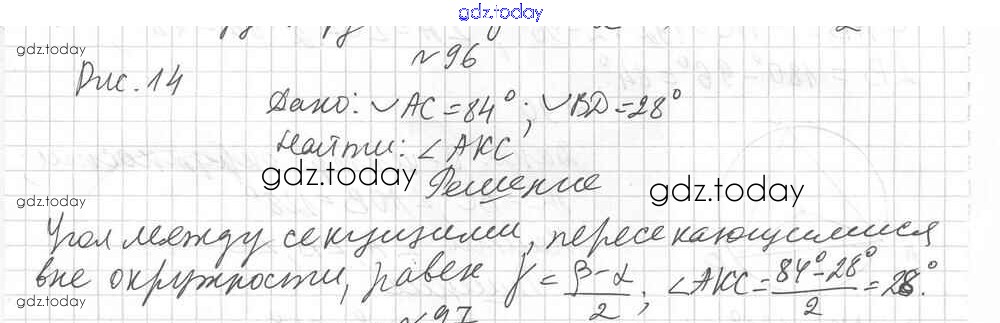 gdz.today
gdz.today
№96
Рис. 14
Дано: ◡AC = 84°; ◡BD = 28°
gdz.today
Найти: ∠AKC
gdz.today
gdz.today
gdz.today
Решение
Угол между секущими, пересекающимися
вне окружности, равен γ = (β-α)/2; ∠AKC = (84°-28°)/2 = 28°.
gdz.today
№97